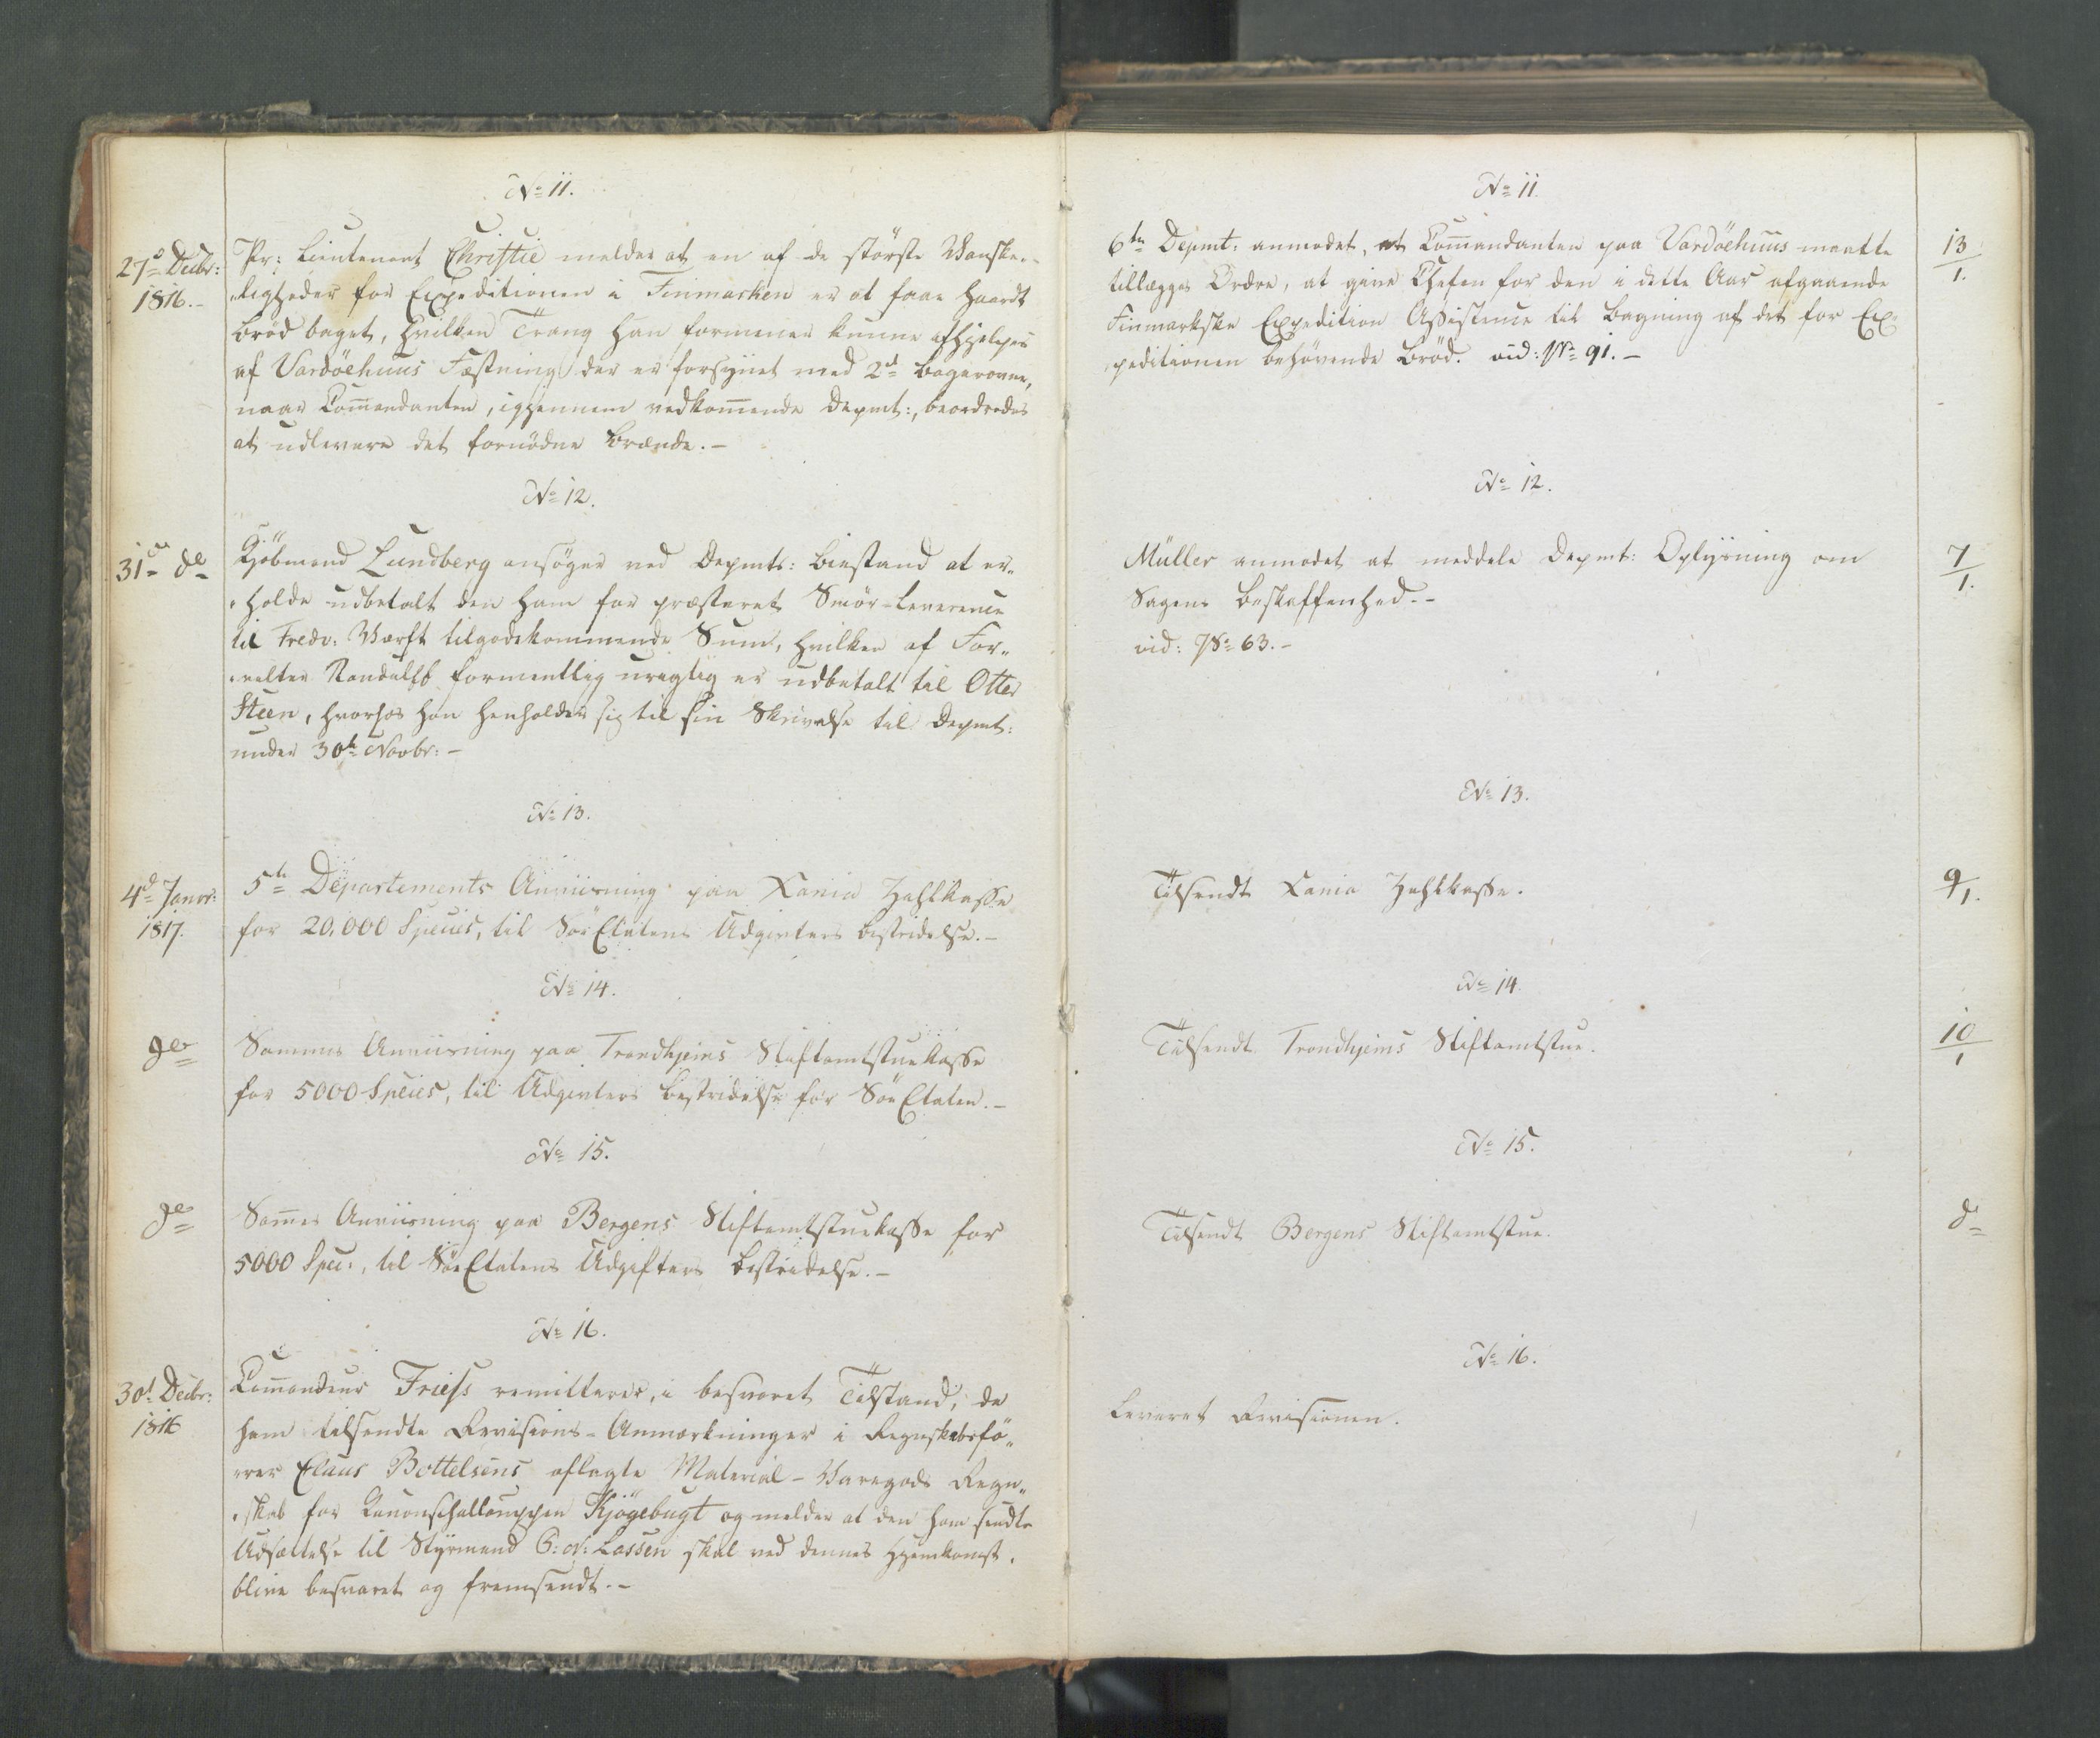 No 11.
27de Decbr:
1816.-
Pr: Lieutenant Christie melder at en af de störste Vanske-
„ligheder for Expeditionen i Finmarken er at faae haardt
Bröd baget, hvilken Trang han formener kunne afhjelpes
af Vardöehuus Fæstning der er forsÿnet med 2de Bagerovne,
naar Com̄andanten, igjennem vedkom̄ende Depmt:, beordredes
at udlevere det fornödne Brænde.-
No 12.
31de do
Kjöbmand Lundberg ansöger ved Depmts: Biestand at er„
„holde udbetalt den ham for præsteret Smör-Leverence
til Fredv: Værft tilgodekommende Sum, hvilken af For„
„valter Randulff formentlig urigtig er udbetalt til Otter
Steen, hvorhos han henholder sig til sin Skrivelse til Depmt:
under 30te Novbr:-
No 13.
4de Janvr:
1817.
5te Departements Anviisning paa Xania Zahlkasse
for 20,000 Species, til SöeEtatens Udgivters Bestridelse.-
No 14.
do
Sammes Anviisning paa Trondhjems Stiftamtstuekasse
for 5000 Species, til Udgivters Bestridelse for SöeEtaten.-
No 15.
do
Sam̄es Anviisning paa Bergens Stiftamtstuekasse for
5000 Spec:, til SöeEtatens Udgifters Bestridelse.-
No 16.
30te Decbr:
1816
Com̄andeur Friess remitterer, i besvaret Tilstand, de
ham tilsendte Revisions-Anmærkninger i Regnskabsfö„
„rer Claus Bottelsens aflagte Material-Varegods Regn„
„skab for Kanonschalouppen Kjögebugt og melder at den ham sendte
Udsættelse til Stÿrmand C: N: Lassen skal ved dennes Hjemkomst,
blive besvaret og fremsendt.-
No 11.
6te Depmt: anmodet, at Com̄andanten paa Vardöehuus maatte
tillægges Ordre, at give Chefen for den i dette Aar afgaaende
Finmarkske Expedition Assistence til Bagning af det for Ex„
„peditionen behövende Bröd. vid: No 91.-
13/1.
No 12.
Müller anmodet at meddele Depmt: Oplÿsning om
Sagens Beskaffenhed.-
vid: No 63.-
7/1.
No 13.
Tilsendt Xania Zahlkasse.
9/1.
No 14.
Tilsendt Trondhjems Stiftamtstue.
10/1
No 15.
Tilsendt Bergens Stiftamtstue.
do
No 16.
Leveret Revisionen.